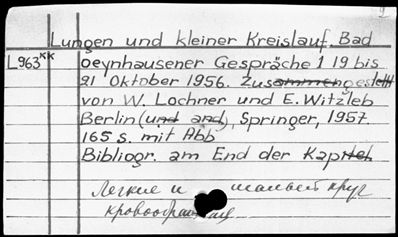 Lungen und kleiner Kreislauf. Bad
L963** Oeynhausener Gespräche 1 19 bis
21 Oktober 1956. Zusammengestellt
von W. Lochner und E. Witzleb
Berlin (und and), Springer, 1957.
165 S. mit Abb
Bibliogr. am End der Kapitel
Легкие и малый круг
кровообращ